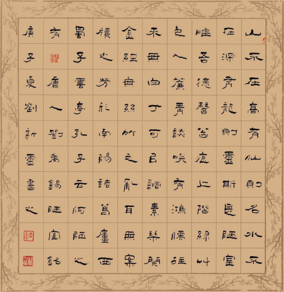 山不在高有仙則名水不
在深有龍則靈斯是陋室
惟吾德馨苔痕上階綠草
色入簾青談笑有鴻儒往
來無白丁可以調素琴閱
金經無絲竹之亂耳無案
牘之勞形南陽諸葛廬西
蜀子雲亭孔子云何陋之
有唐人劉禹錫陋室銘
庚子夏劉新雲書之